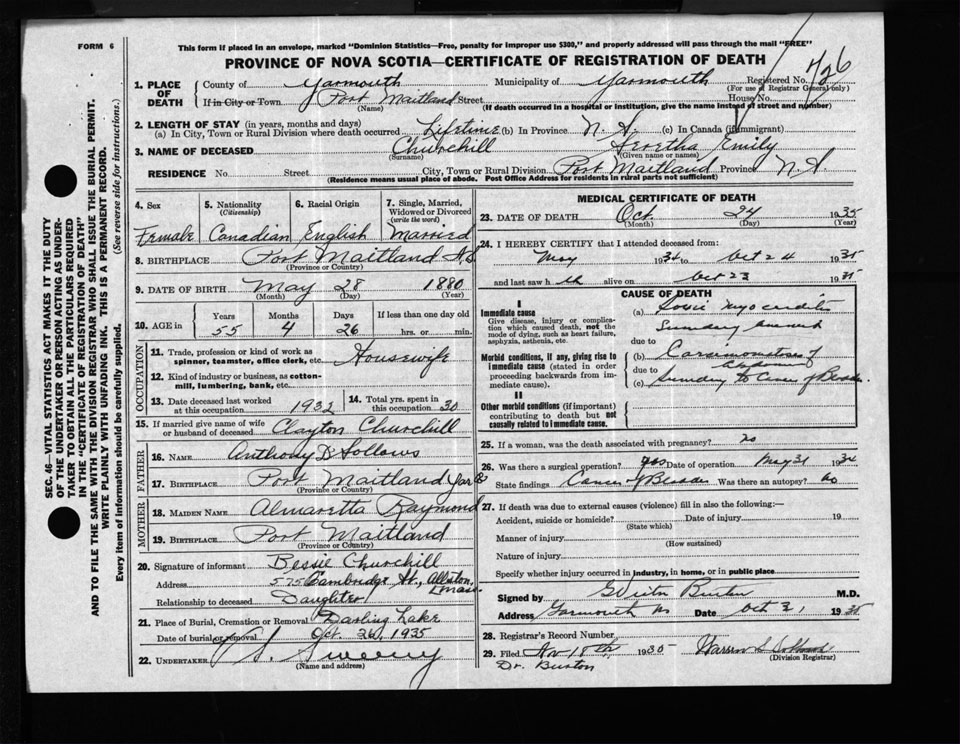 FORM 6
This form if placed in an envelope, marked "Dominion Statistics—Free, penalty for improper use $300," and properly addressed will pass through the mail "FREE"
PROVINCE OF NOVA SCOTIA—CERTIFICATE OF REGISTRATION OF DEATH
Registered No. 426
(For use of Registrar General only)
1. PLACE OF DEATH
County of Yarmouth Municipality of Yarmouth
If in City or Town Port Maitland Street House No.
(Name) (If death occurred in a hospital or institution, give the name instead of street and number)
2. LENGTH OF STAY (in years, months and days)
(a) In City, Town or Rural Division where death occurred Lifetime (b) In Province N.S. (c) In Canada (if immigrant)
3. NAME OF DECEASED Churchill Emily
(Surname) (Given name or names)
RESIDENCE No. Street City, Town or Rural Division Port Maitland Province N.S.
(Residence means usual place of abode. Post Office Address for residents in rural parts not sufficient)
4. Sex
Female
5. Nationality
(Citizenship)
Canadian
6. Racial Origin
English
7. Single, Married, Widowed or Divorced
(write the word)
Married
8. BIRTHPLACE Port Maitland N.S
(Province or Country)
9. DATE OF BIRTH May 28 1880
(Month) (Day) (Year)
10. AGE in
Years Months Days If less than one day old
55 4 26 hrs. or min.
OCCUPATION
11. Trade, profession or kind of work as spinner, teamster, office clerk, etc. Housewife
12. Kind of industry or business, as cotton-mill, lumbering, bank, etc.
13. Date deceased last worked at this occupation 1932
14. Total yrs. spent in this occupation 30
15. If married give name of wife or husband of deceased Clayton Churchill
FATHER
16. Name Anthony D Sollows
17. Birthplace Port Maitland Yar Co
(Province or Country)
MOTHER
18. Maiden Name Almaretta Raymond
19. Birthplace Port Maitland
(Province or Country)
20. Signature of informant Bessie Churchill
Address 575 Cambridge St., Allston, Mass.
Relationship to deceased Daughter
21. Place of Burial, Cremation or Removal Darling Lake
Date of burial or removal Oct. 26, 1935
22. UNDERTAKER S. Sweeny
(Name and address)
MEDICAL CERTIFICATE OF DEATH
23. DATE OF DEATH Oct. 24 1935
(Month) (Day) (Year)
24. I HEREBY CERTIFY that I attended deceased from:
May 1934 to Oct 24 1935
and last saw h alive on Oct 23 1935
CAUSE OF DEATH
I
Immediate cause
Give disease, injury or complication which caused death, not the mode of dying, such as heart failure, asphyxia, asthenia, etc.
(a) Toxic myocarditis
due to
Morbid conditions, if any, giving rise to immediate cause (stated in order proceeding backwards from immediate cause).
(b) Carcinomatosis of
due to
(c) to Cancer of Bladder
II
Other morbid conditions (if important) contributing to death but not causally related to immediate cause.
25. If a woman, was the death associated with pregnancy? no
26. Was there a surgical operation? yes Date of operation May 31 1934
State findings Cancer of Bladder Was there an autopsy? no
27. If death was due to external causes (violence) fill in also the following:—
Accident, suicide or homicide? Date of injury 19
(State which)
Manner of injury
(How sustained)
Nature of injury
Specify whether injury occurred in industry, in home, or in public place
Signed by Burton M.D.
Address Yarmouth NS Date Oct 31 1935
28. Registrar's Record Number
29. Filed Nov 18th 1930 Warren
Dr. Burton (Division Registrar)
SEC. 46—VITAL STATISTICS ACT MAKES IT THE DUTY
OF THE UNDERTAKER OR PERSON ACTING AS UNDER-
TAKER TO OBTAIN ALL THE PARTICULARS REQUIRED
IN THE "CERTIFICATE OF REGISTRATION OF DEATH"
AND TO FILE THE SAME WITH THE DIVISION REGISTRAR WHO SHALL ISSUE THE BURIAL PERMIT.
WRITE PLAINLY WITH UNFADING INK. THIS IS A PERMANENT RECORD.
Every item of information should be carefully supplied. (See reverse side for instructions.)